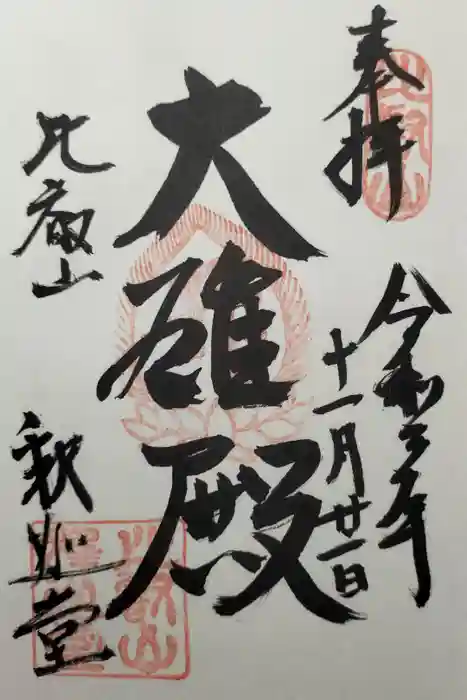 奉拝
令和 年
十一月廿一日
大雄殿
比叡山
釈迦堂